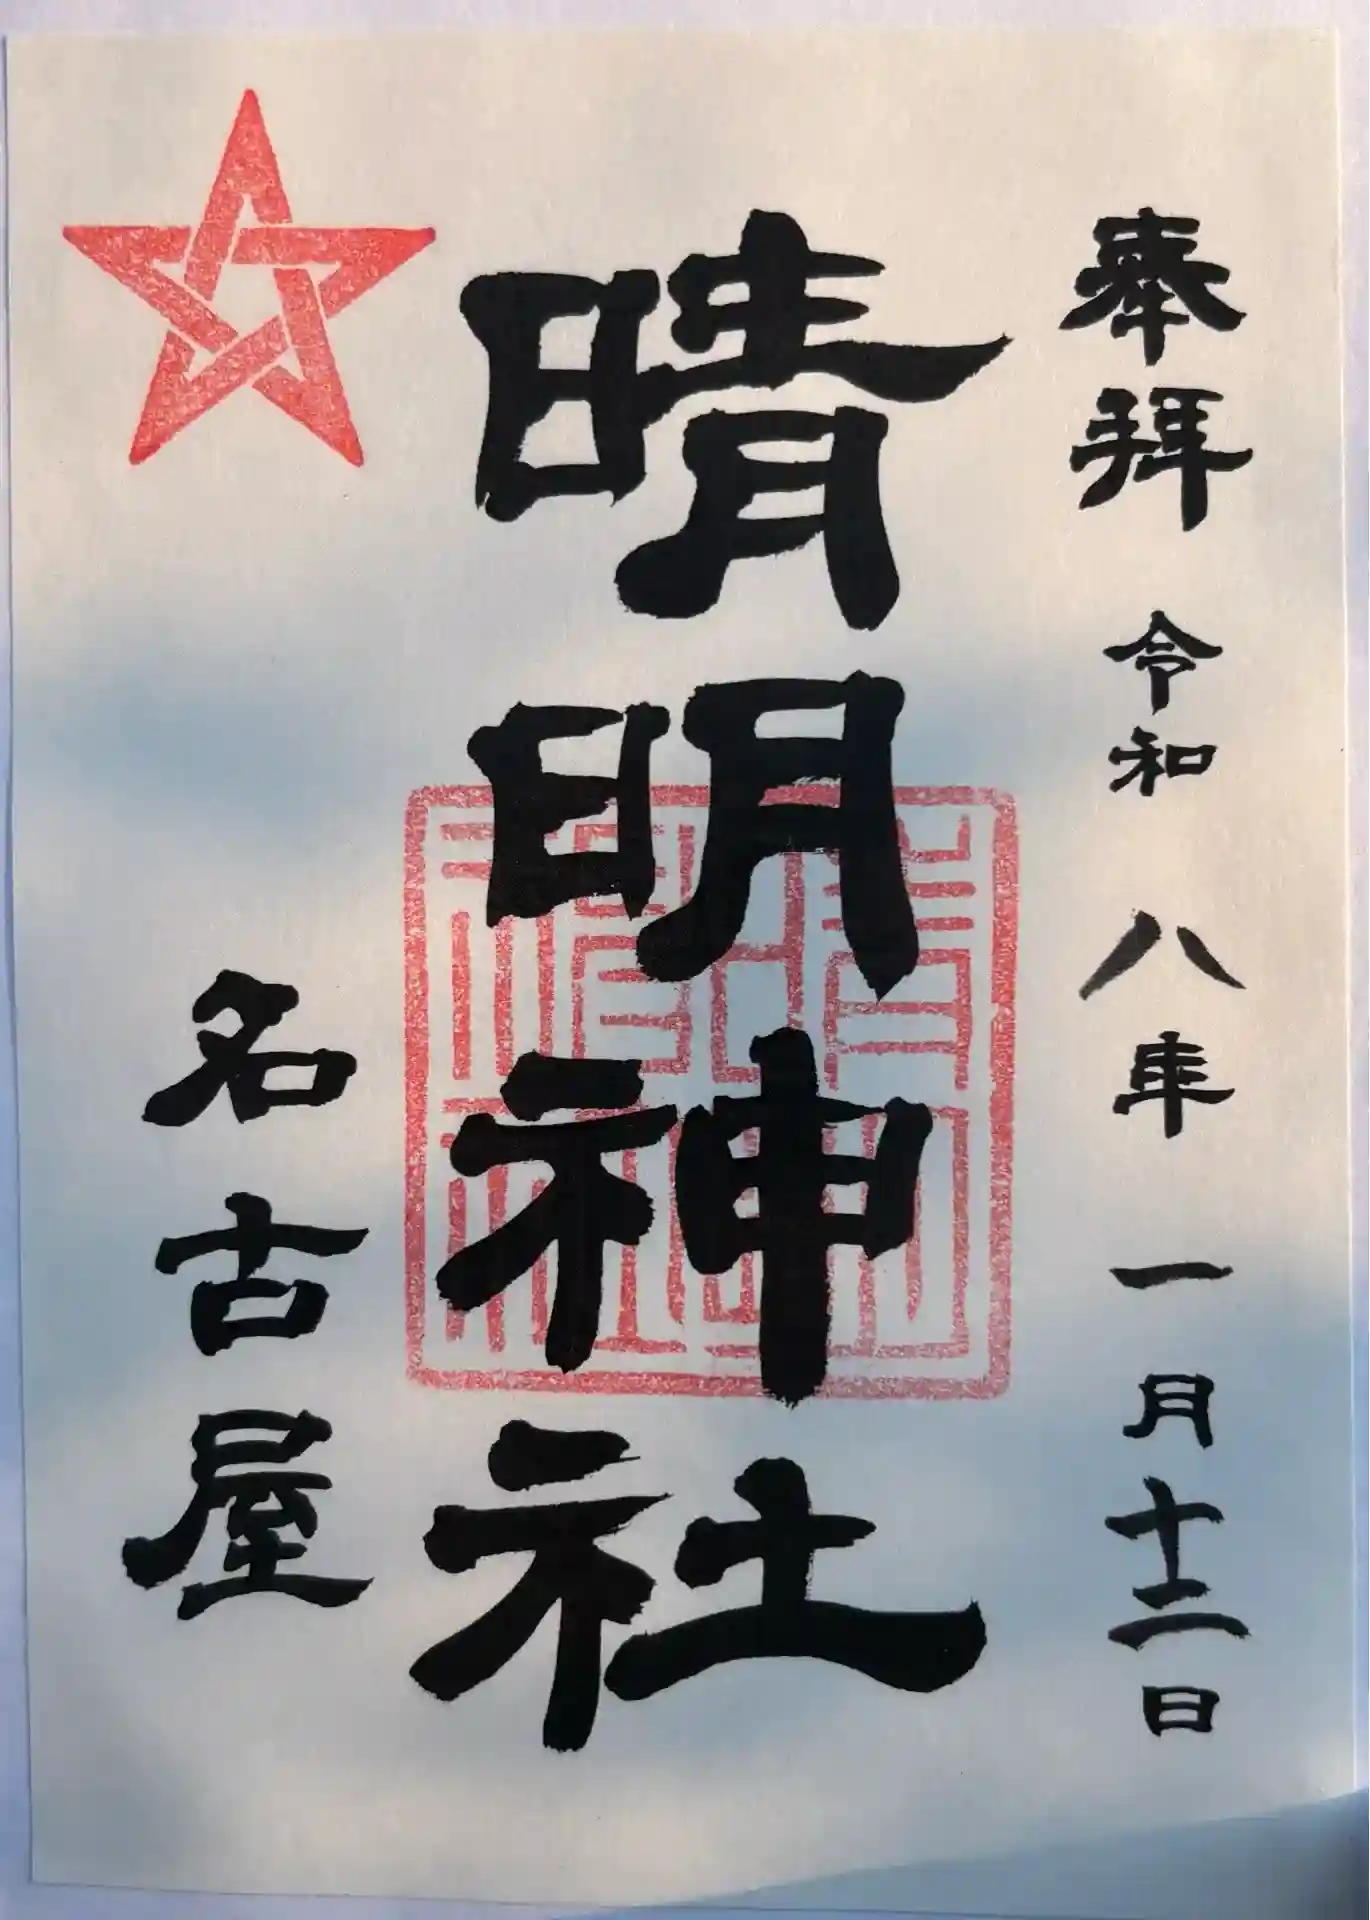 奉拝 令和八年一月十二日
晴明神社
名古屋